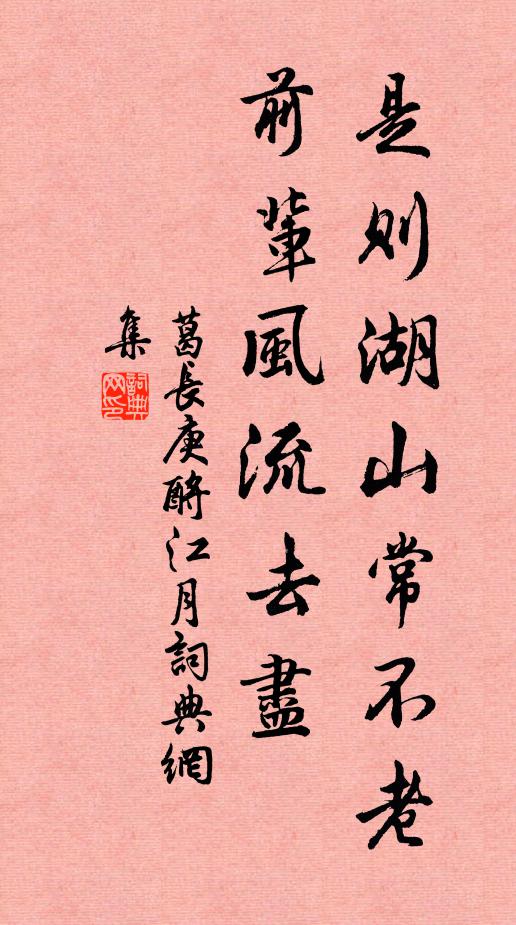 是則湖山常不老
前輩風流去盡
葛長庚酹江月詞典網
集
詞典网印